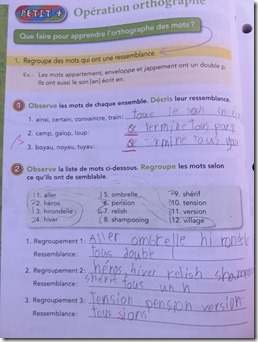 PETIT + Opération orthographe
Que faire pour apprendre l'orthographe des mots?
1. Regroupe des mots qui ont une ressemblance.
Ex.: Les mots appartement, enveloppe et jappement ont un double p.
Ils ont aussi le son [an] écrit en.
1 Observe les mots de chaque ensemble. Décris leur ressemblance.
1. ainsi, certain, convaincre, train: tous le son in
2. camp, galop, loup: se termine tous par p
3. boyau, noyau, tuyau: se termine tous yau
2 Observe la liste de mots ci-dessous. Regroupe les mots selon
ce qu'ils ont de semblable.
1. aller 5. ombrelle 9. shérif
2. héros 6. pension 10. tension
3. hirondelle 7. relish 11. version
4. hiver 8. shampooing 12. village
1. Regroupement 1: Aller ombrelle hirondelle
Ressemblance: tous double l
2. Regroupement 2: héros, hiver relish
Ressemblance: shérif tous un h
3. Regroupement 3: Tension pension version
Ressemblance: tous sion